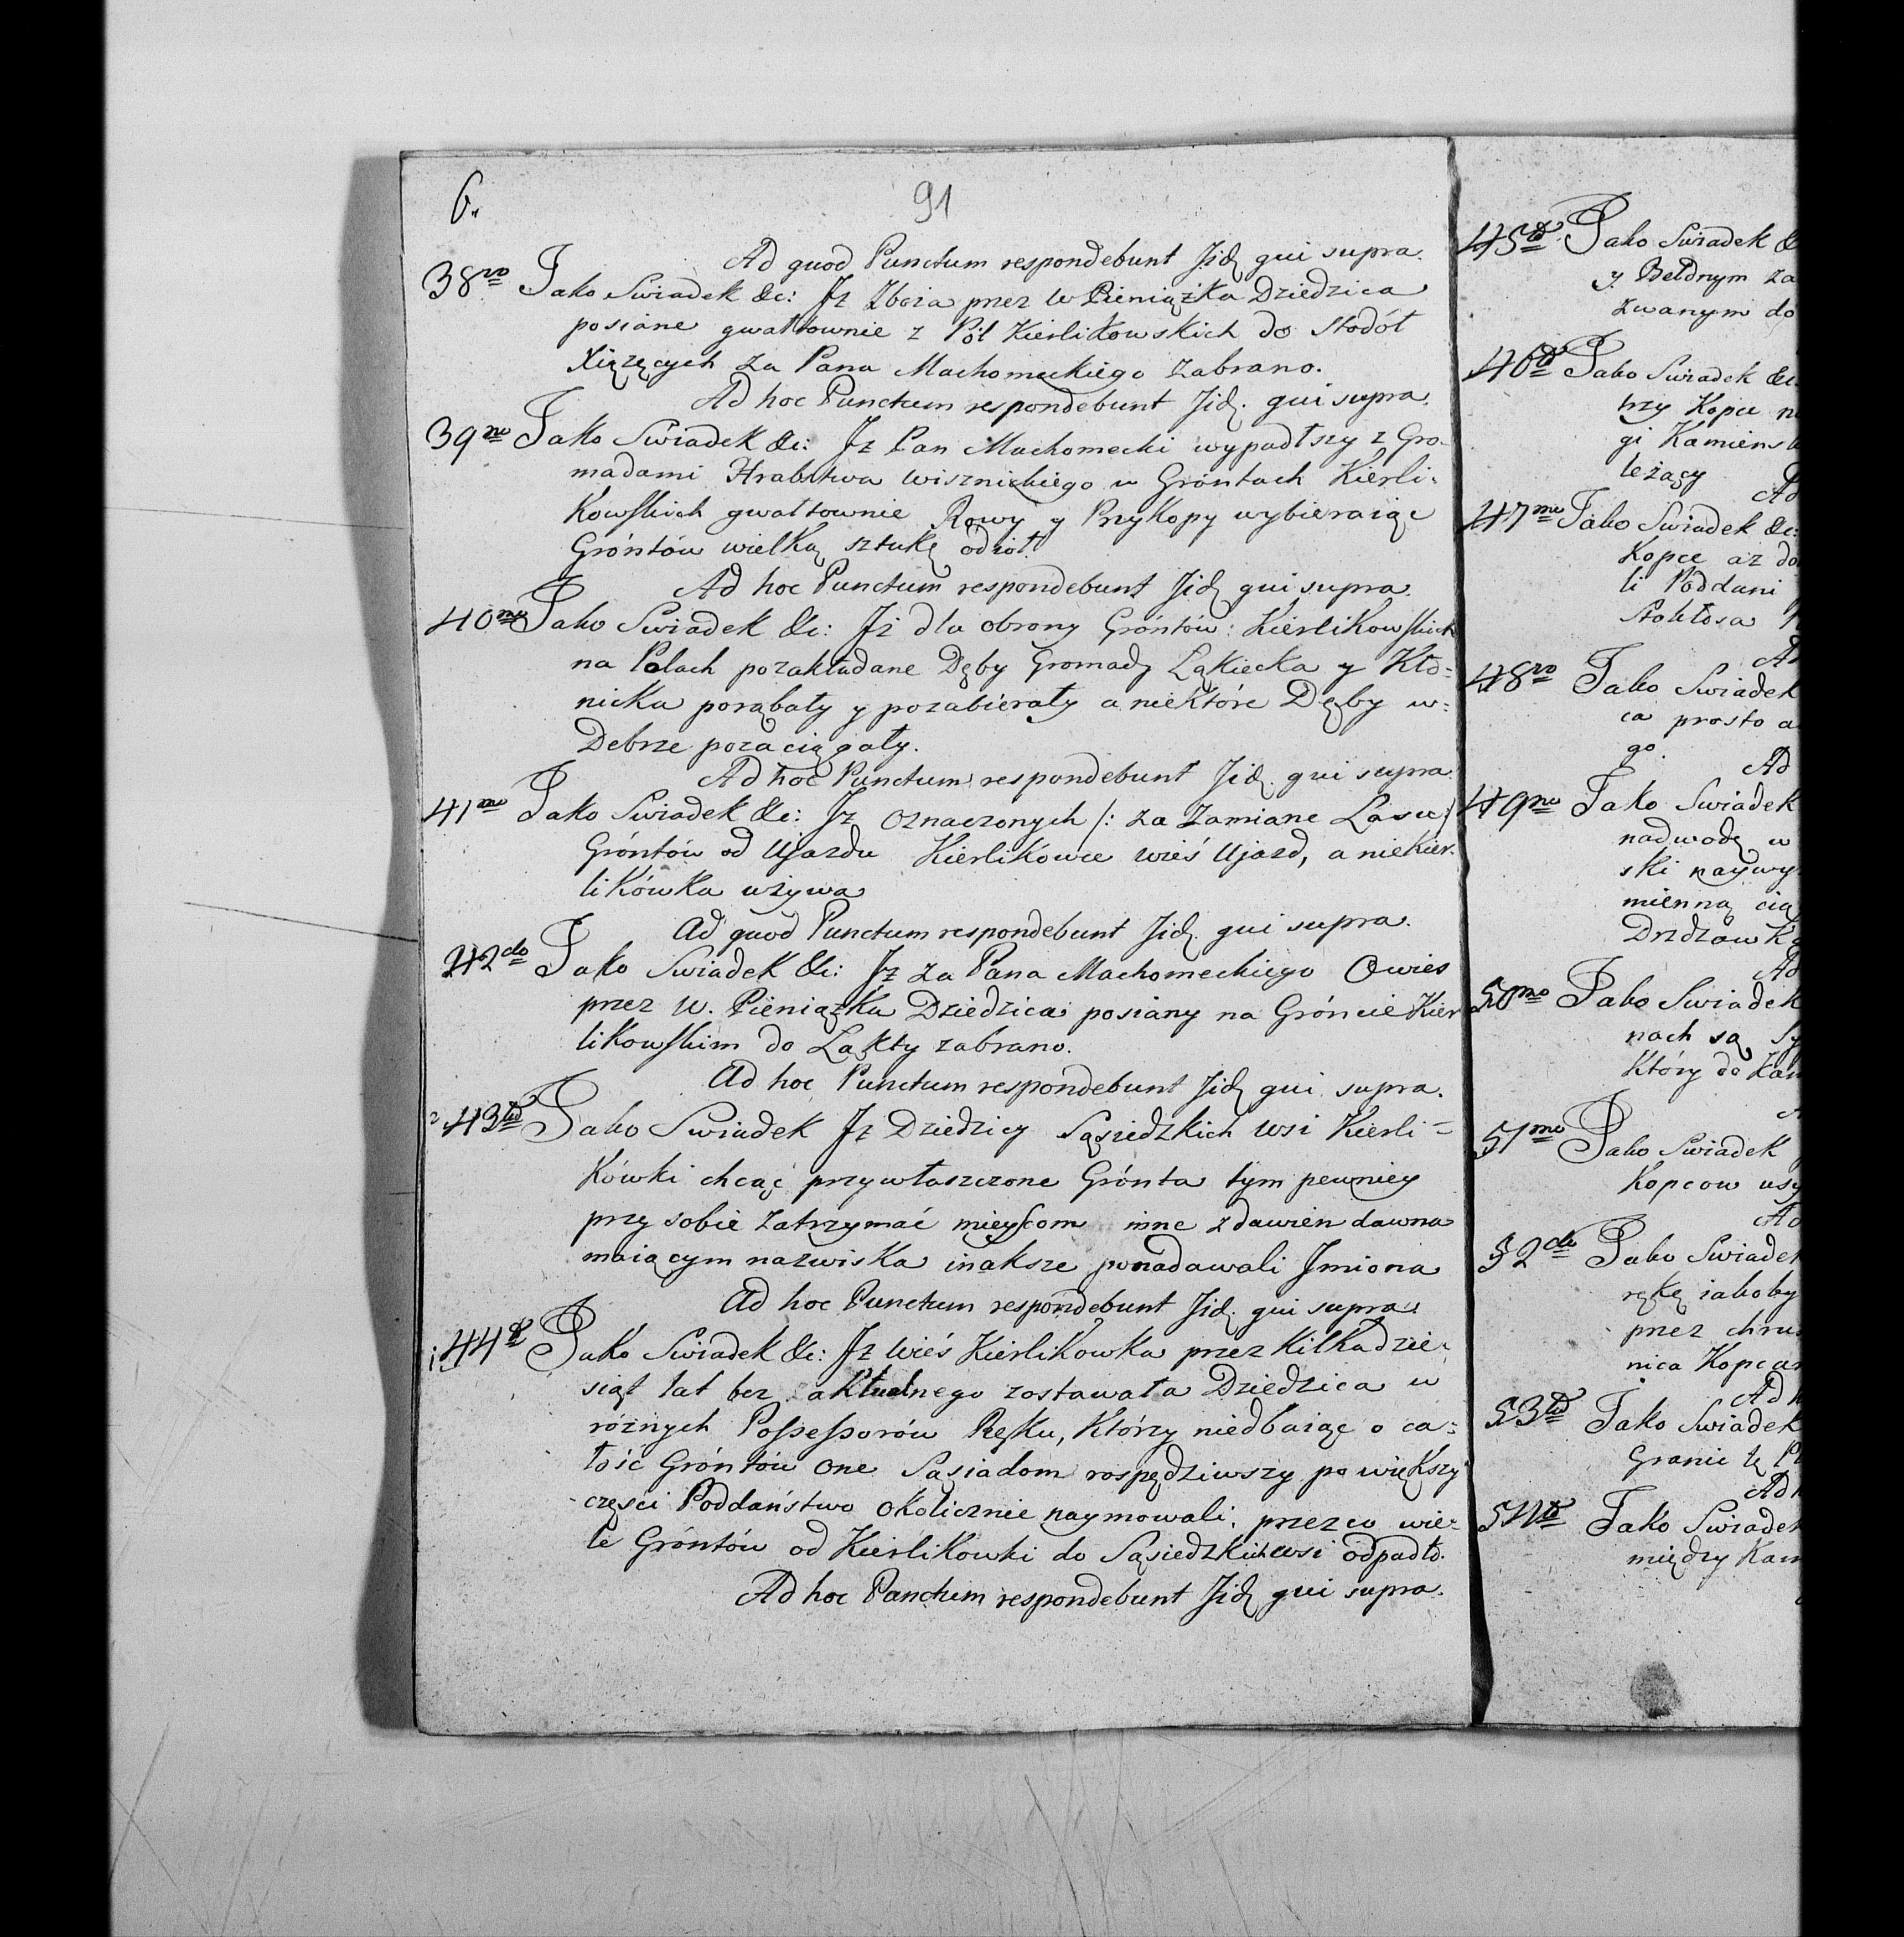 6.
91
Ad quod Punctum respondebunt Jid. qui supra.
38vo Jako Swiadek &c: Jz Zboża przez W Pieniążka Dziedzica
posiane gwałtownie z Pól Kierlikowskich do Stodół
Xiążęcych za Pana Machomeckiego zabrano.
Ad hoc Punctum respondebunt Jid. qui supra.
39no Jako Swiadek &c: Jz Pan Machomecki wypadłszy z Gro-
madami Hrabstwa wisznickiego w Gróntach Kierli-
kowskich gwałtownie Rowy y Przykopy wybieraiąc
Gróntów wielką sztukę odiął.
Ad hoc Punctum respondebunt Jid. qui supra.
40mo Jako Swiadek &c: Jż dla obrony Gróntów: Kierlikowskich
na Polach pozakładane Dęby Gromady Łąkiecka y Kło-
nicka porąbały y pozabierały a niektóre Dęby w-
Debrze pozaciągały.
Ad hoc Punctum respondebunt Jid. qui supra
41mo Jako Swiadek &c: Jz oznaczonych /: za Zamiane Lasu :/
Gróntów od Ujazdu Kierlikowce wieś Ujazd, a nie Kier-
likówka używa
Ad quod Punctum respondebunt Jid. qui supra.
42do Jako Swiadek &c: Jz za Pana Machomeckiego Owies
przez W. Pieniążka Dziedzica posiany na Gróncie Kier
likowskim do Łąkty zabrano.
Ad hoc Punctum respondebunt Jid. qui supra.
43tio Jako Swiadek Jz Dziedzicy Sąsiedzkich wsi Kierli-
kówki chcąc przywłaszczone Grónta tym pewniey
przy sobie zatrzymać mieyscom inne z dawien dawna
maiącym nazwiska inaksze ponadawali Jmiona
Ad hoc Punctum respondebunt Jid. qui supra.
44to Jako Swiadek &c: Jz Wieś Kierlikowka przez kilkadzie-
siąt lat bez aktualnego zostawała Dziedzica w
róznych Possessorów Ręku, Którzy niedbaiąc o ca-
łość Gróntów one Sąsiadom rospędziwszy po większy
części Poddaństwo okolicznie naymowali, przez co wie-
le Gróntów od Kierlikowki do Sąsiedzkich wsi odpadło.
Ad hoc Punctum respondebunt Jid. qui supra.
45to Jako Swiadek &
y Bełdnym za
zwanym do
46to Jako Swiadek &c
trzy Kopce
gi Kamiens
leżący
Ad
47mo Jako Swiadek &c:
Kopce az do
li Poddani
Stokłosa
Ad
48vo Jako Swiadek
ca prosto a
go.
Ad
49no Jako Swiadek
nadwodę w
ski naywy
mienną cią
Ad
50mo Jako Swiadek
nach są
Który do Kam
51mo Jako Swiadek
Kopcow usy
Ad
52do Jako Swiadek
rękę iakoby
przez chru
nica Kopcam
Ad h
53tio Jako Swiadek
Granic tę
Ad h
54to Jako Swiadek
między Kam